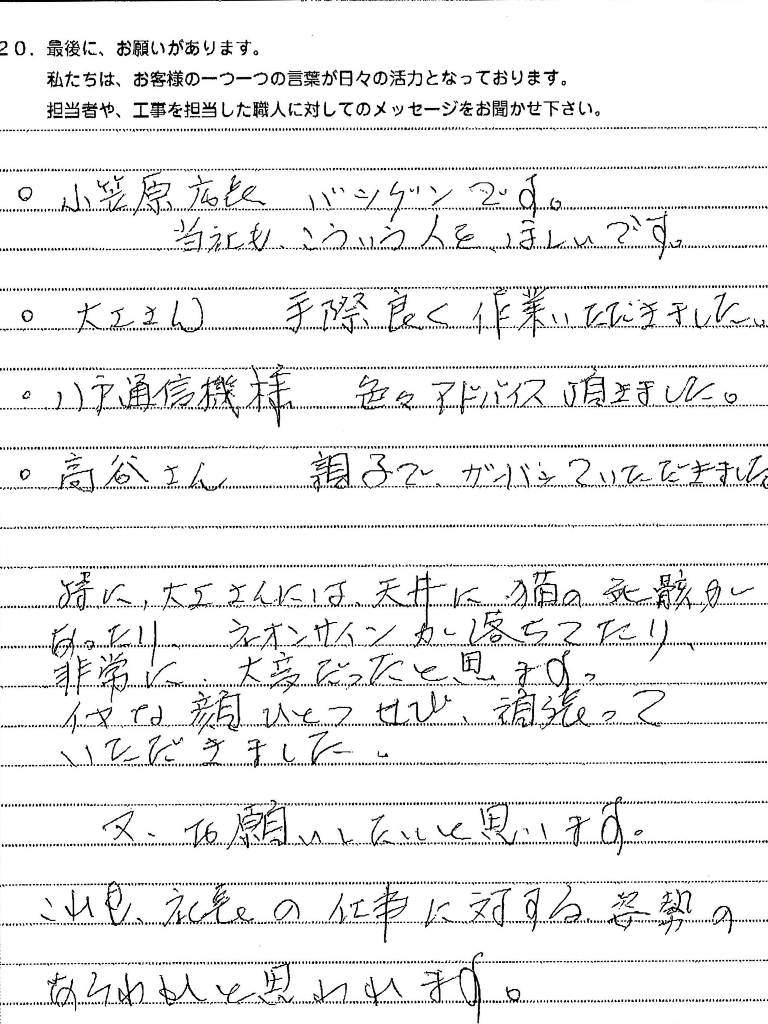 20. 最後に、お願いがあります。
私たちは、お客様の一つ一つの言葉が日々の活力となっております。
担当者や、工事を担当した職人に対してのメッセージをお聞かせ下さい。
○ 小笠原店長 バツグンです。
当社も、こういう人を、ほしいです。
○ 大工さん 手際良く作業いただきました。
○ 八戸通信機様 色々アドバイス頂きました。
○ 高谷さん 調子で、ガンバッていただきました
特に、大工さんには、天井に猫の死骸が
あったり、ネオンサインが落ちてたり、
非常に、大変だったと思います。
イヤな顔ひとつせず、頑張って
いただきました。
又、お願いしたいと思います。
これ
社長の仕事に対する姿勢の
あらわれと思われます。